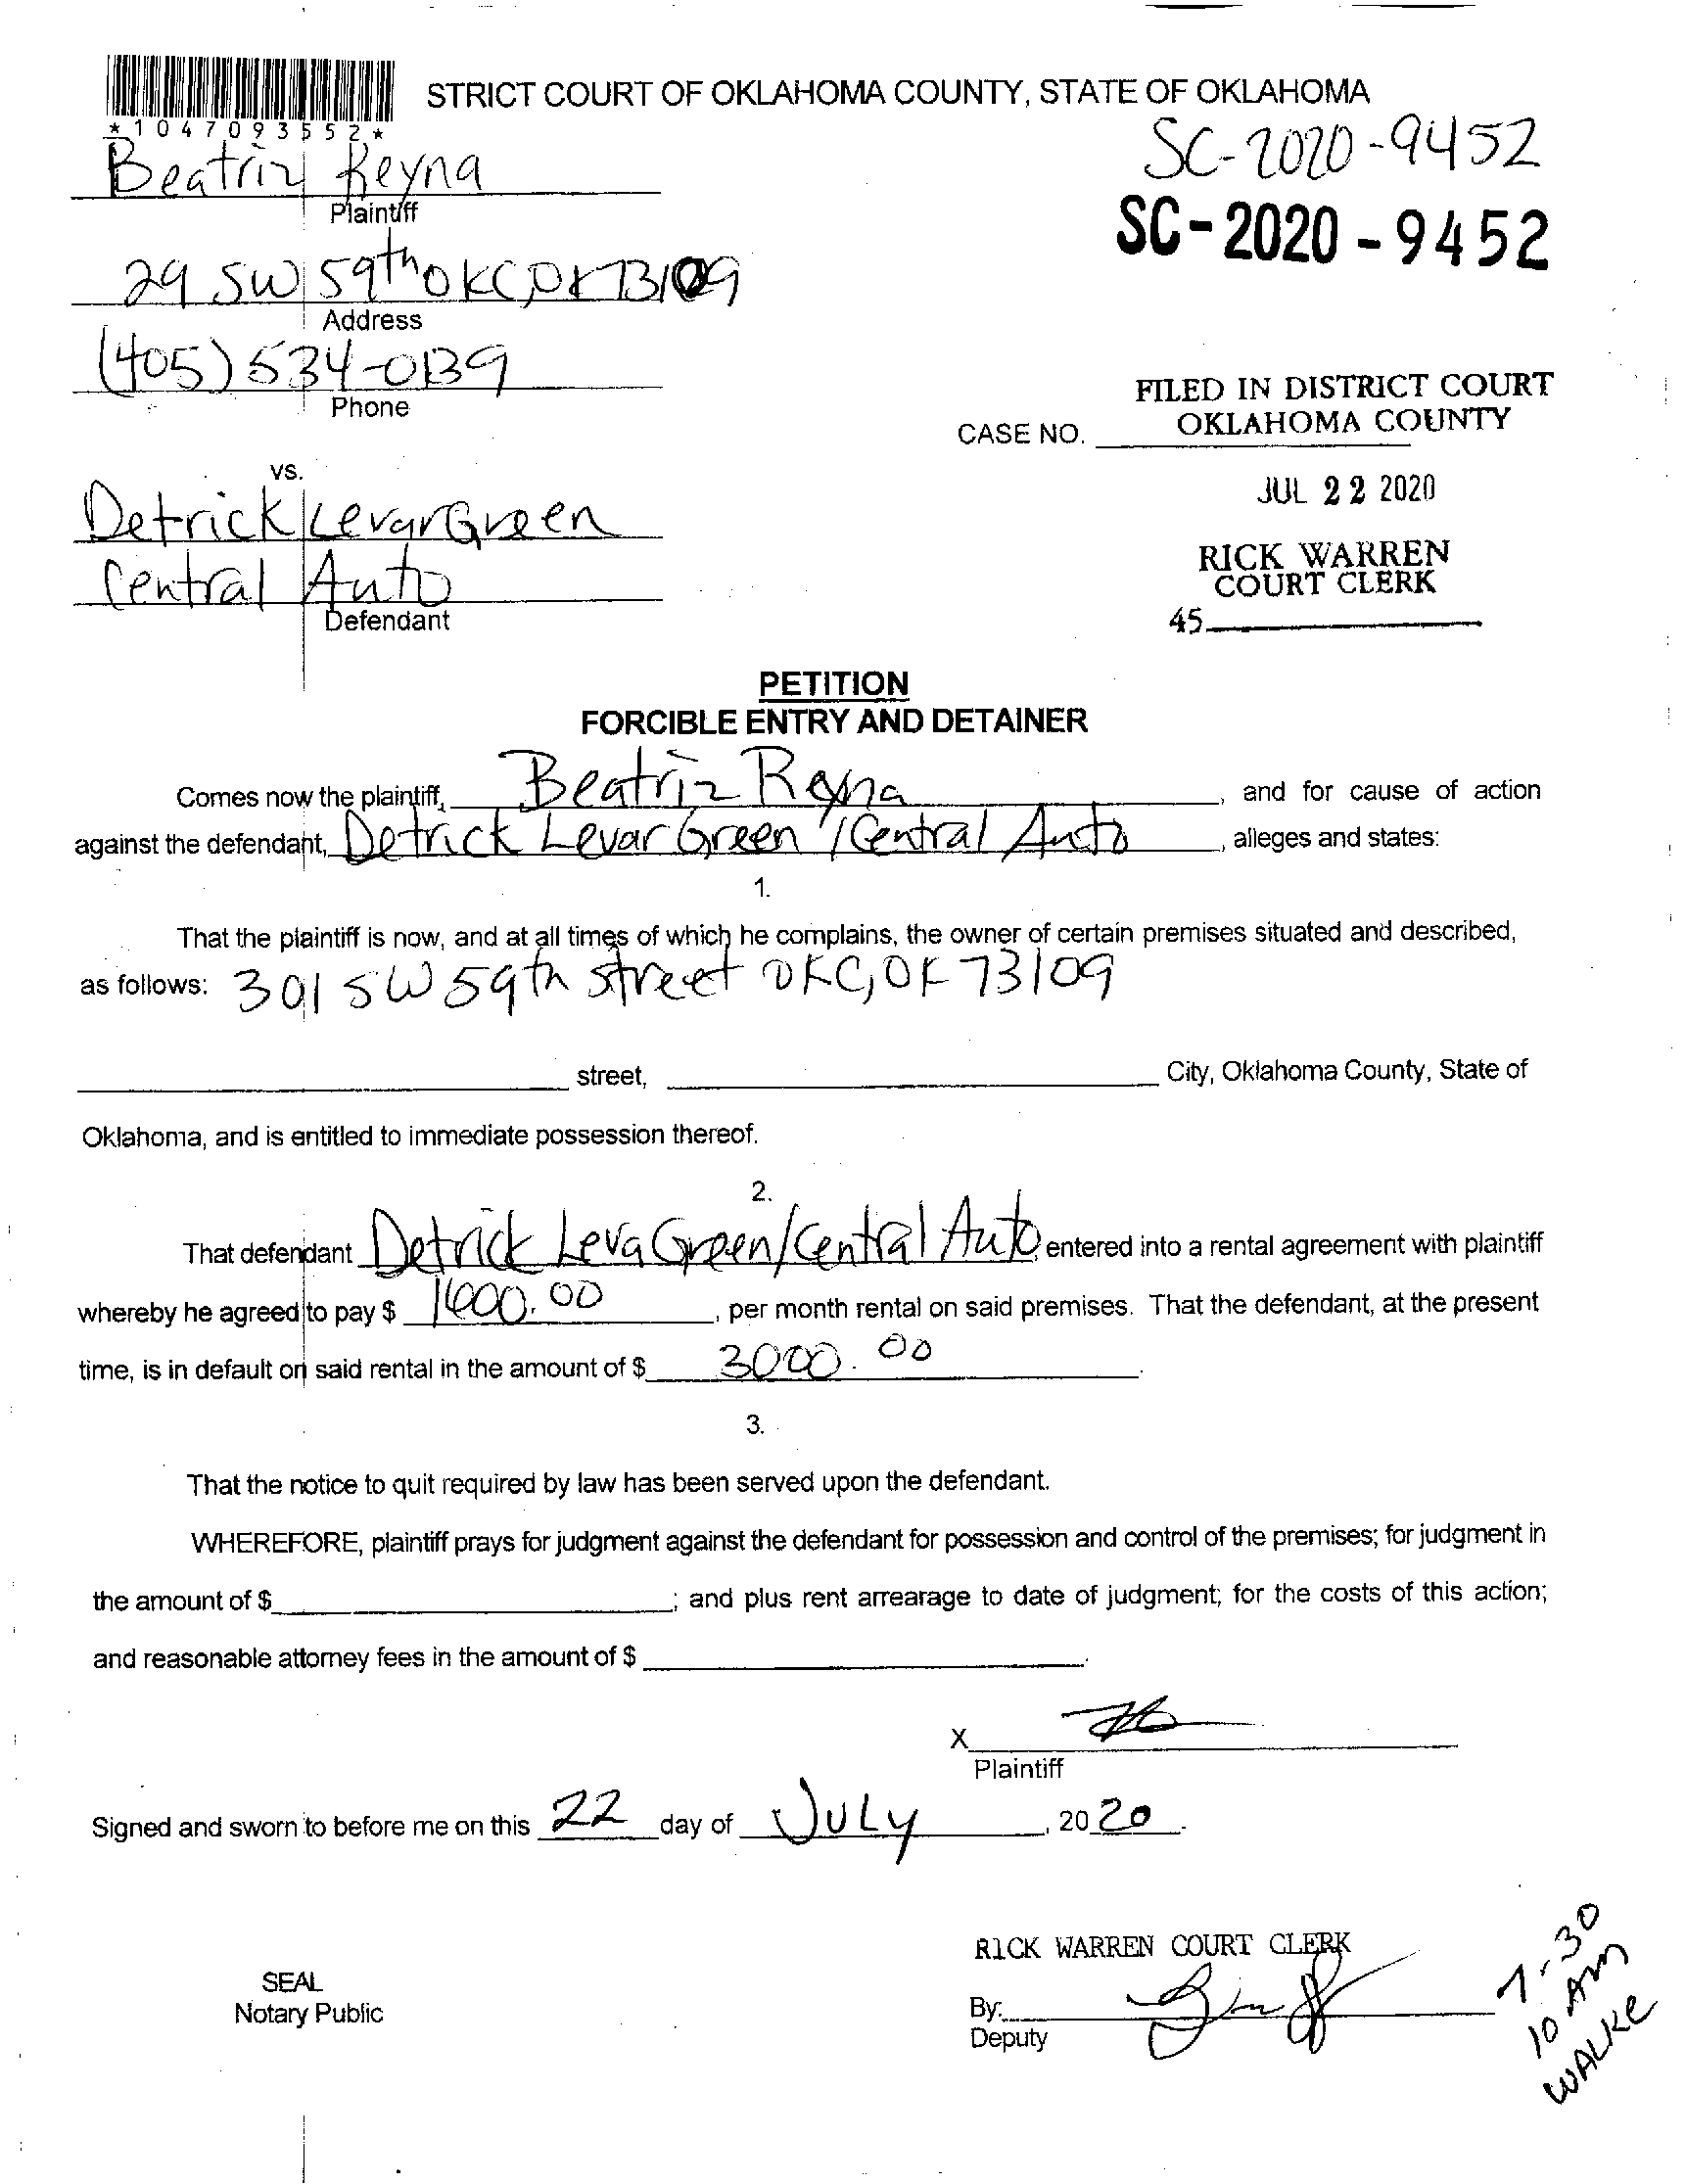 STRICT COURT OF OKLAHOMA COUNTY, STATE OF OKLAHOMA
*1047093552*
SC-2020-9452
Beatriz Reyna
Plaintiff
SC-2020-9452
29 SW 59th OKC, OK 73109
Address
(405) 534-0139
Phone
FILED IN DISTRICT COURT
OKLAHOMA COUNTY
CASE NO.
vs.
JUL 22 2020
Detrick Levar Green
Central Auto
Defendant
RICK WARREN
COURT CLERK
45
PETITION
FORCIBLE ENTRY AND DETAINER
Comes now the plaintiff, Beatriz Reyna, and for cause of action
against the defendant, Detrick Levar Green / Central Auto, alleges and states:
1.
That the plaintiff is now, and at all times of which he complains, the owner of certain premises situated and described,
as follows: 301 SW 59th street OKC, OK 73109
street, City, Oklahoma County, State of
Oklahoma, and is entitled to immediate possession thereof.
2.
That defendant Detrick Leva Green/Central Auto, entered into a rental agreement with plaintiff
whereby he agreed to pay $ 1600.00, per month rental on said premises. That the defendant, at the present
time, is in default on said rental in the amount of $ 3000.00.
3.
That the notice to quit required by law has been served upon the defendant.
WHEREFORE, plaintiff prays for judgment against the defendant for possession and control of the premises; for judgment in
the amount of $ ; and plus rent arrearage to date of judgment; for the costs of this action;
and reasonable attorney fees in the amount of $ .
X
Plaintiff
Signed and sworn to before me on this 22 day of JULY, 2020.
RICK WARREN COURT CLERK
SEAL
Notary Public
By:
Deputy
7-30
10 AM
WALKE